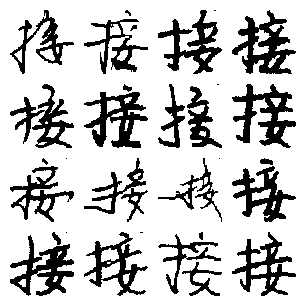 接接接接
接接接接
接接接接
接接接接